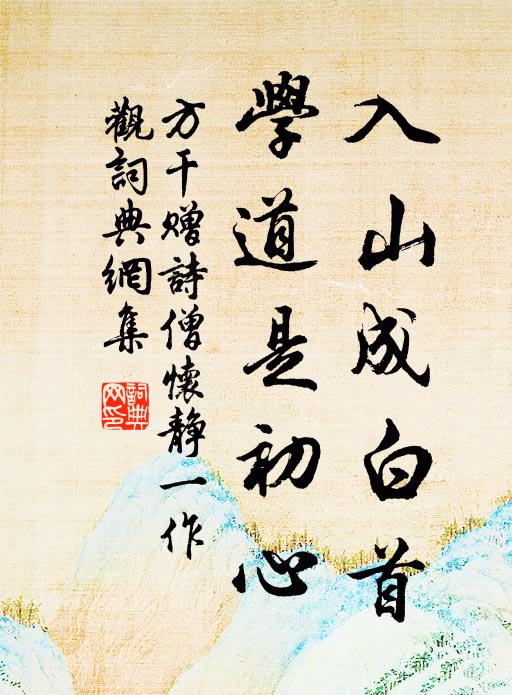 入山成白首
學道是初心
方干贈詩僧懷静一作
觀詞典網集
詞典網印